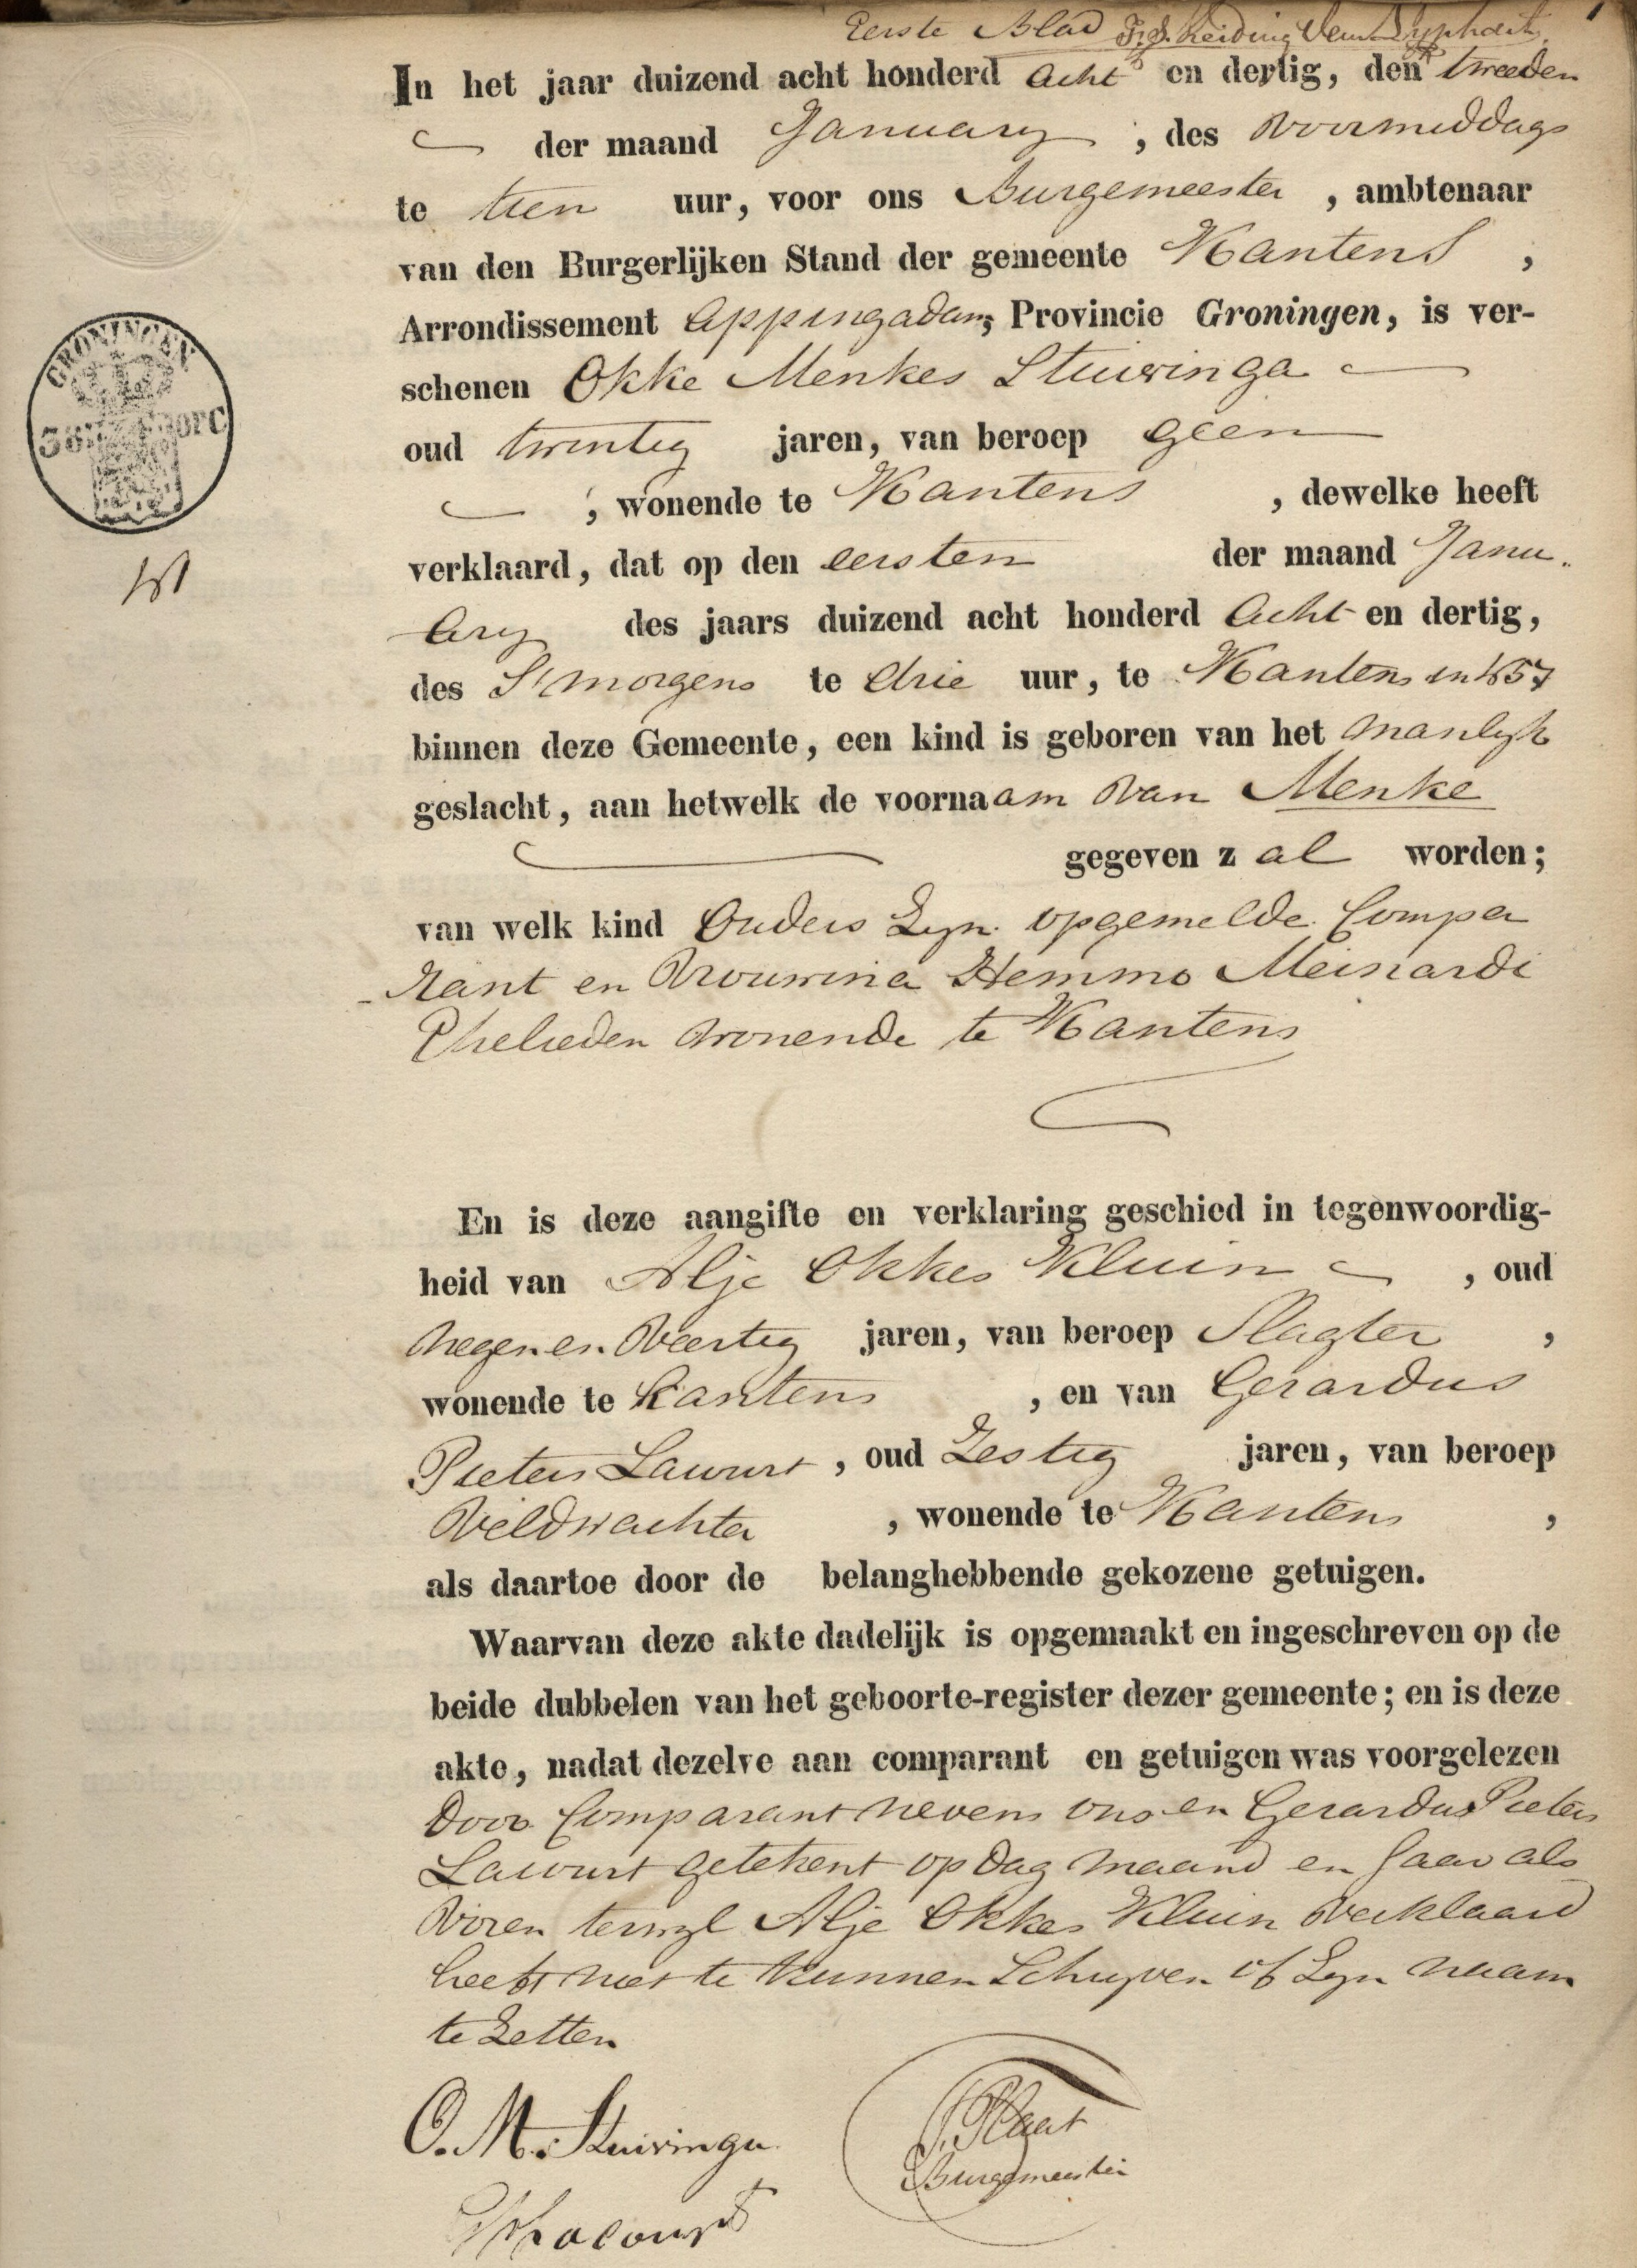 Eerste Blad
In het jaar duizend acht honderd acht en dertig, den tweeden
der maand January, des voormiddags
te tien uur, voor ons Burgemeester, ambtenaar
van den Burgerlijken Stand der gemeente Kantens,
Arrondissement Appingadam, Provincie Groningen, is ver-
schenen Okke Menkes Stuivinga
oud twintig jaren, van beroep geen
, wonende te Kantens, dewelke heeft
verklaard, dat op den eersten der maand Janu-
ary des jaars duizend acht honderd acht en dertig,
des S'morgens te drie uur, te Kantens in No 57
binnen deze Gemeente, een kind is geboren van het manlyk
geslacht, aan hetwelk de voornaam van Menke
gegeven zal worden;
van welk kind Ouders Zyn opgemelde Compa
-rant en Vrouwina Hemmo Meinardi
Ehelieden wonende te Kantens
GRONINGEN
No 1
En is deze aangifte en verklaring geschied in tegenwoordig-
heid van Alje Okkes Kluin, oud
negen en veertig jaren, van beroep Slagter,
wonende te Kantens, en van Gerardus
Pieters Lacourt, oud Zestig jaren, van beroep
Veldwachter, wonende te Kantens,
als daartoe door de belanghebbende gekozene getuigen.
Waarvan deze akte dadelijk is opgemaakt en ingeschreven op de
beide dubbelen van het geboorte-register dezer gemeente; en is deze
akte, nadat dezelve aan comparant en getuigen was voorgelezen
door Comparant nevens ons en Gerardus Pieters
Lacourt getekent op dag maand en Jaar als
voren terwyl Alje Okkes Kluin verklaard
heeft niet te kunnen Schryven of Zyn naam
te Zetten
O. M. Stuivinga
J. Plaat
Burgemeester
Lacourt